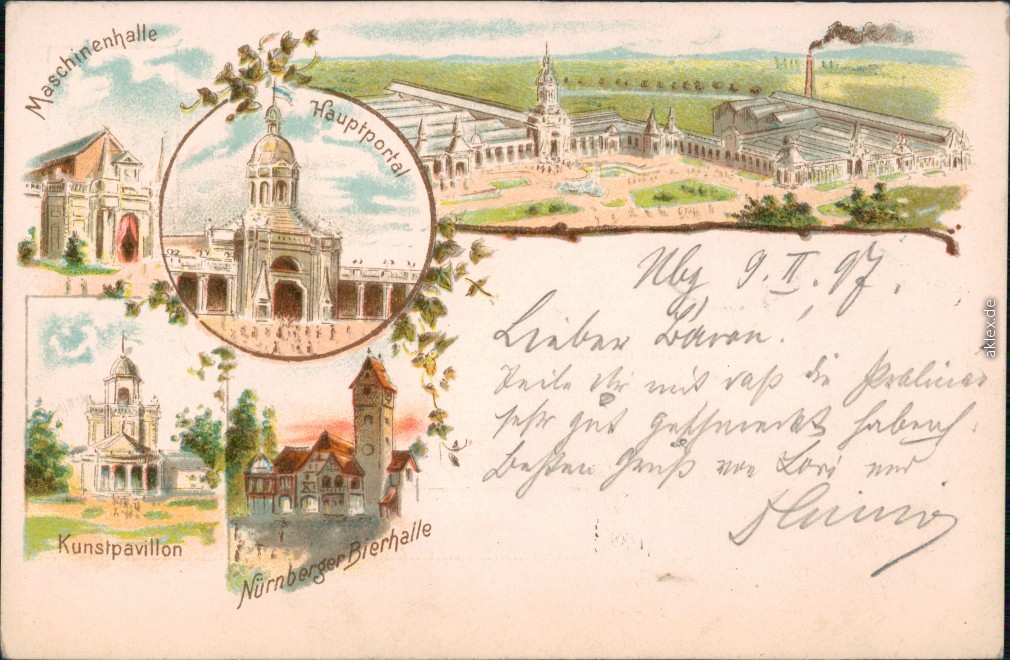 Maschinenhalle
Hauptportal
Kunstpavillon
Nürnberger Bierhalle
Nbg 9. II. 97.
Lieber Baron!
Teile dir mit daß die Pralinés
sehr gut geschmeckt haben.
Besten Gruß von Lori und
aklex.de